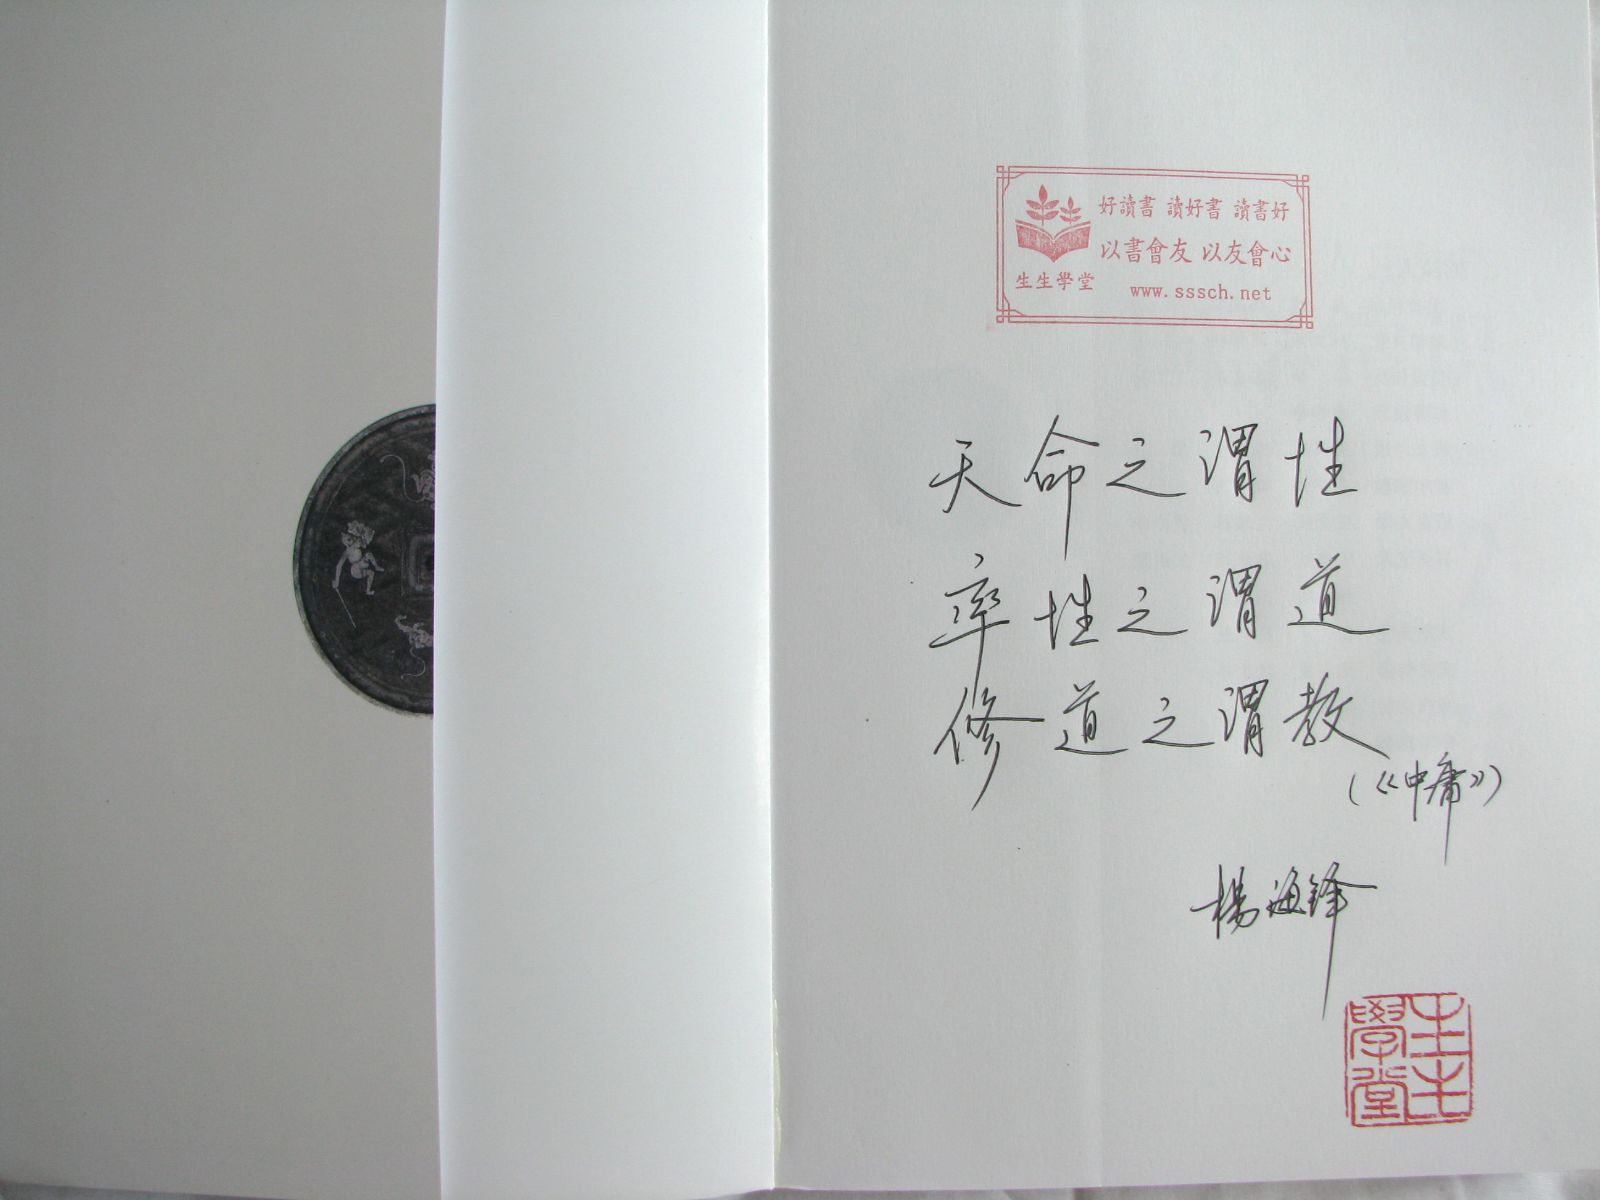 好讀書 讀好書 讀書好
以書會友 以友會心
生生學堂
www.sssch.net
天命之谓性
率性之谓道
修道之谓教
(《中庸》)
楊海鋒
生生學堂